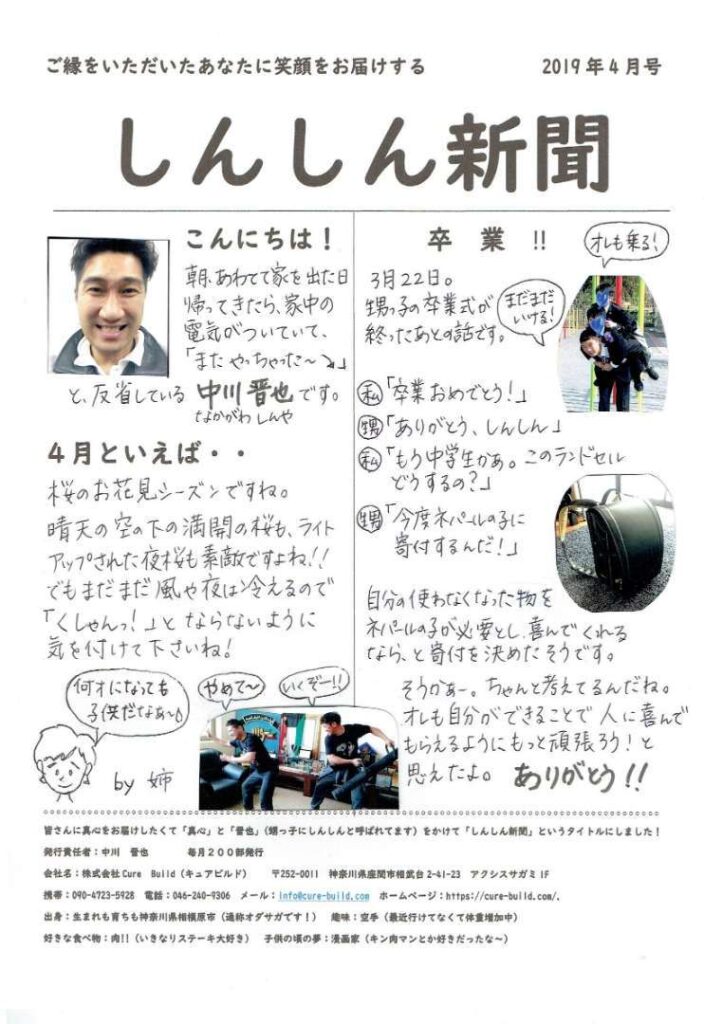 ご縁をいただいたあなたに笑顔をお届けする
2019年4月号
しんしん新聞
こんにちは！
朝、あわてて家を出た日
帰ってきたら、家中の
電気がついていて、
「また やっちゃった〜↘」
と、反省している 中川 晋也 です。
なかがわ しんや
4月といえば・・
桜のお花見シーズンですね。
晴天の空の下の満開の桜も、ライト
アップされた夜桜も素敵ですよね!!
でもまだまだ 風や夜は冷えるので
「くしゃんっ！」と ならないように
気を付けて下さいね！
何才になっても
子供だなぁ〜
by 姉
やめて〜
いくぞー!!
卒業!!
オレも乗る！
まだまだ
いける！
3月22日。
甥っ子の卒業式が
終ったあとの話です。
私「卒業おめでとう！」
甥「ありがとう、しんしん」
私「もう中学生かぁ。このランドセル
どうするの？」
甥「今度ネパールの子に
寄付するんだ！」
自分の使わなくなった物を
ネパールの子が必要とし、喜んでくれる
なら、と寄付を決めたそうです。
そうかぁー。ちゃんと考えてるんだね。
オレも自分ができることで人に喜んで
もらえるようにもっと頑張ろう！と
思えたよ。 ありがとう!!
皆さんに真心をお届けしたくて「真心」と「晋也」(甥っ子にしんしんと呼ばれてます)をかけて「しんしん新聞」というタイトルにしました！
発行責任者：中川 晋也 毎月200部発行
会社名：株式会社Cure Build（キュアビルド） 〒252-0011 神奈川県座間市相武台2-41-23 アクシスサガミ1F
携帯：090-4723-5928 電話：046-240-9306 メール：info@cure-build.com ホームページ：https://cure-build.com/、
出身：生まれも育ちも神奈川県相模原市（通称オダサガです！） 趣味：空手（最近行けてなくて体重増加中）
好きな食べ物：肉!!（いきなりステーキ大好き） 子供の頃の夢：漫画家（キン肉マンとか好きだったな〜）